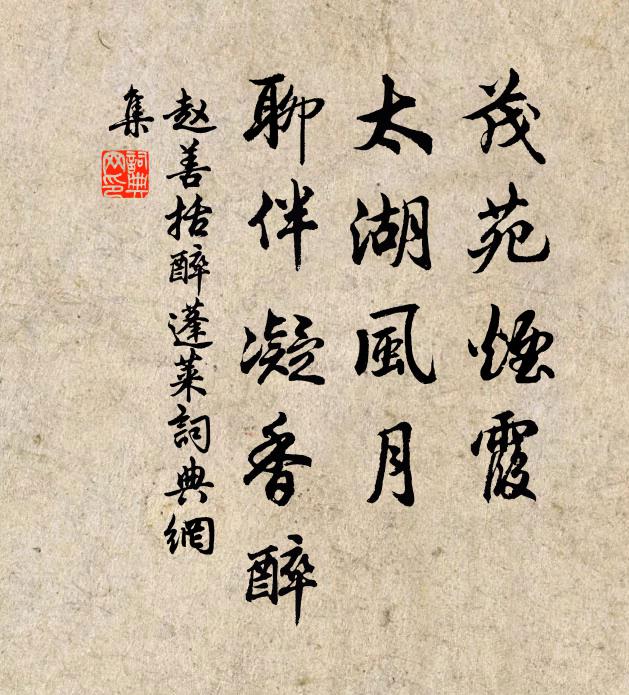 茂苑煙霞
太湖風月
聊伴凝香醉
赵善括醉蓬莱詞典網
集
詞典網印